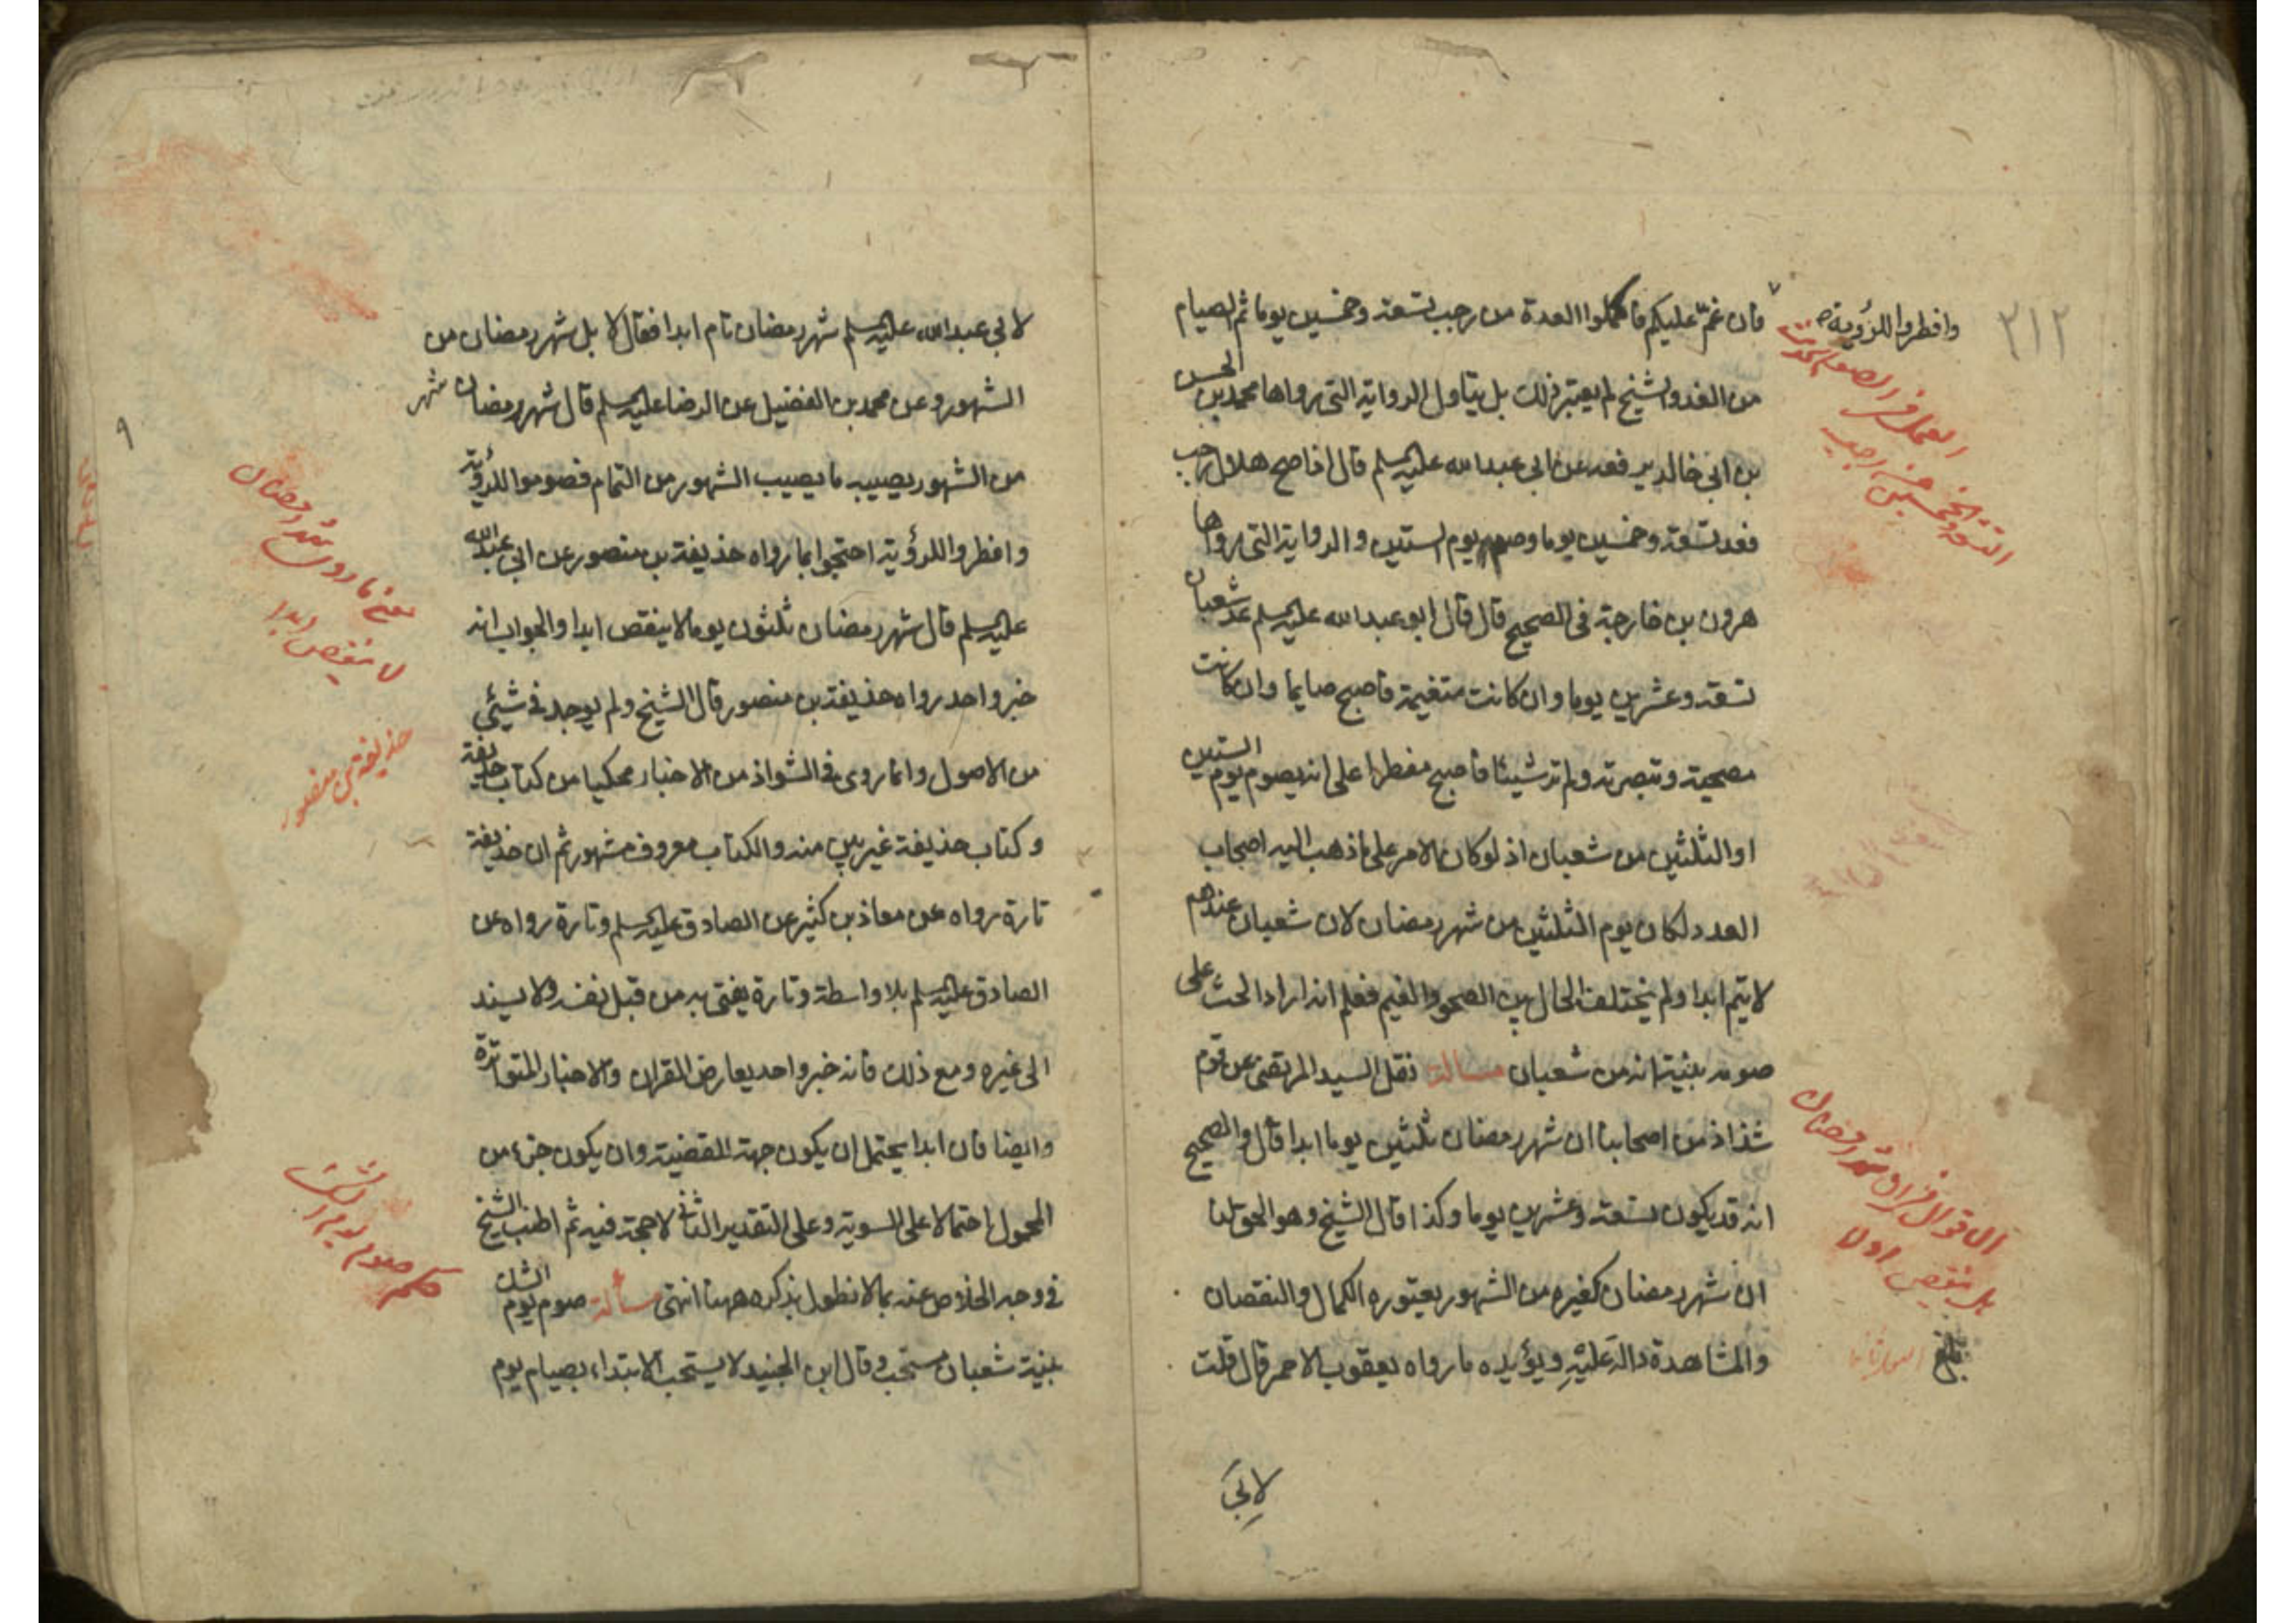 ٣١٢
وافطروا للرؤية
فان غمّ عليكم فاكملوا العدة من رجب تسعة وخمسين يوما ثم الصيام
من الغد والشيخ لم يعتبر ذلك بل يتاول الرواية التي رواها محمد بن الحسن
بن ابي خالد يرفعه عن ابي عبد الله عليه السلم قال اذا صح هلال رجب
فعد تسعة وخمسين يوما وصم يوم الستين والرواية التي رواها
هرون بن خارجة في الصحيح قال قال ابو عبد الله عليه السلم عد شعبان
تسعة وعشرين يوما وان كانت متغيمة فاصبح صايما وان كانت
مصحية وتبصرته ولم تر شيئا فاصبح مفطرا على انه يصوم يوم الستين
او الثلثين من شعبان اذ لو كان الامر على ما ذهب اليه اصحاب
العدد لكان يوم الثلثين من شهر رمضان لان شعبان عندهم
لا يتم ابدا ولم يختلف الحال بين الصحو والغيم فعلم انه اراد الحث على
صومه بنية انه من شعبان مسالة نقل السيد المرتضى عن قوم
شذاذ من اصحابنا ان شهر رمضان ثلثين يوما ابدا قال والصحيح
انه قد يكون تسعة وعشرين يوما وكذا قال الشيخ وهو الحق لنا
ان شهر رمضان كغيره من الشهور يعتوره الكمال والنقصان
والمشاهدة دالة عليه ويؤيده ما رواه يعقوب الاحمر قال قلت
لابي
الاقوال في ان شهر رمضان
هل ينقص او لا
بلغ
لابي عبد الله عليه السلم شهر رمضان تام ابدا فقال لا بل شهر رمضان من
الشهور وعن محمد بن الفضيل عن الرضا عليه السلم قال شهر رمضان شهر
من الشهور يصيبه ما يصيب الشهور من التمام فصوموا للرؤية
وافطروا للرؤية احتجوا بما رواه حذيفة بن منصور عن ابي عبد الله
عليه السلم قال شهر رمضان ثلثون يوما لا ينقص ابدا والجواب انه
خبر واحد رواه حذيفة بن منصور قال الشيخ ولم يوجد في شيئ
من الاصول وانما روى في الشواذ من الاخبار محكيا من كتاب حذيفة
وكتاب حذيفة عري منه والكتاب معروف مشهور ثم ان حذيفة
تارة رواه عن معاذ بن كثير عن الصادق عليه السلم وتارة رواه عن
الصادق عليه السلم بلا واسطة وتارة يفتى به من قبل نفسه ولا يسند
الى غيره ومع ذلك فانه خبر واحد يعارض القران والاخبار المتواترة
وايضا فان ابدا يحتمل ان يكون جهة القضية وان يكون جزء من
المحمول احتمالا على السوية وعلى التقدير الثاني لا حجة فيه ثم اطنب الشيخ
في وجه الخلاص عنه بما لا نطول بذكره ههنا انتهى مسألة صوم يوم الشك
بنية شعبان مستحب وقال ابن الجنيد لا يستحب الابتداء بصيام يوم
شهر رمضان
لا ينقص ابدا
حذيفة بن منصور
حكم صوم يوم الشك